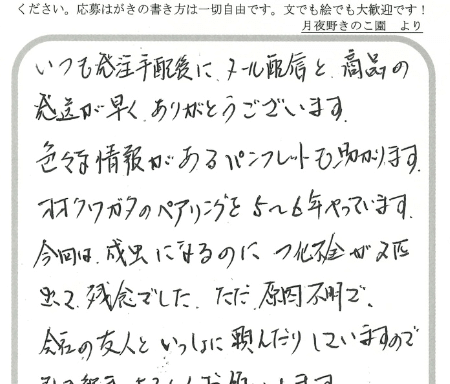 ください。応募はがきの書き方は一切自由です。文でも絵でも大歓迎です！
月夜野きのこ園　より
いつも発注手配後に、メール配信と、商品の
発送が早く、ありがとうございます。
色々な情報があるパンフレットも助かります。
オオクワガタのペアリングを5〜6年やっています。
今回は、成虫になるのに、羽化不全が2匹
出て、残念でした。ただ、原因不明で、
会社の友人といっしょに頼んだりしていますので